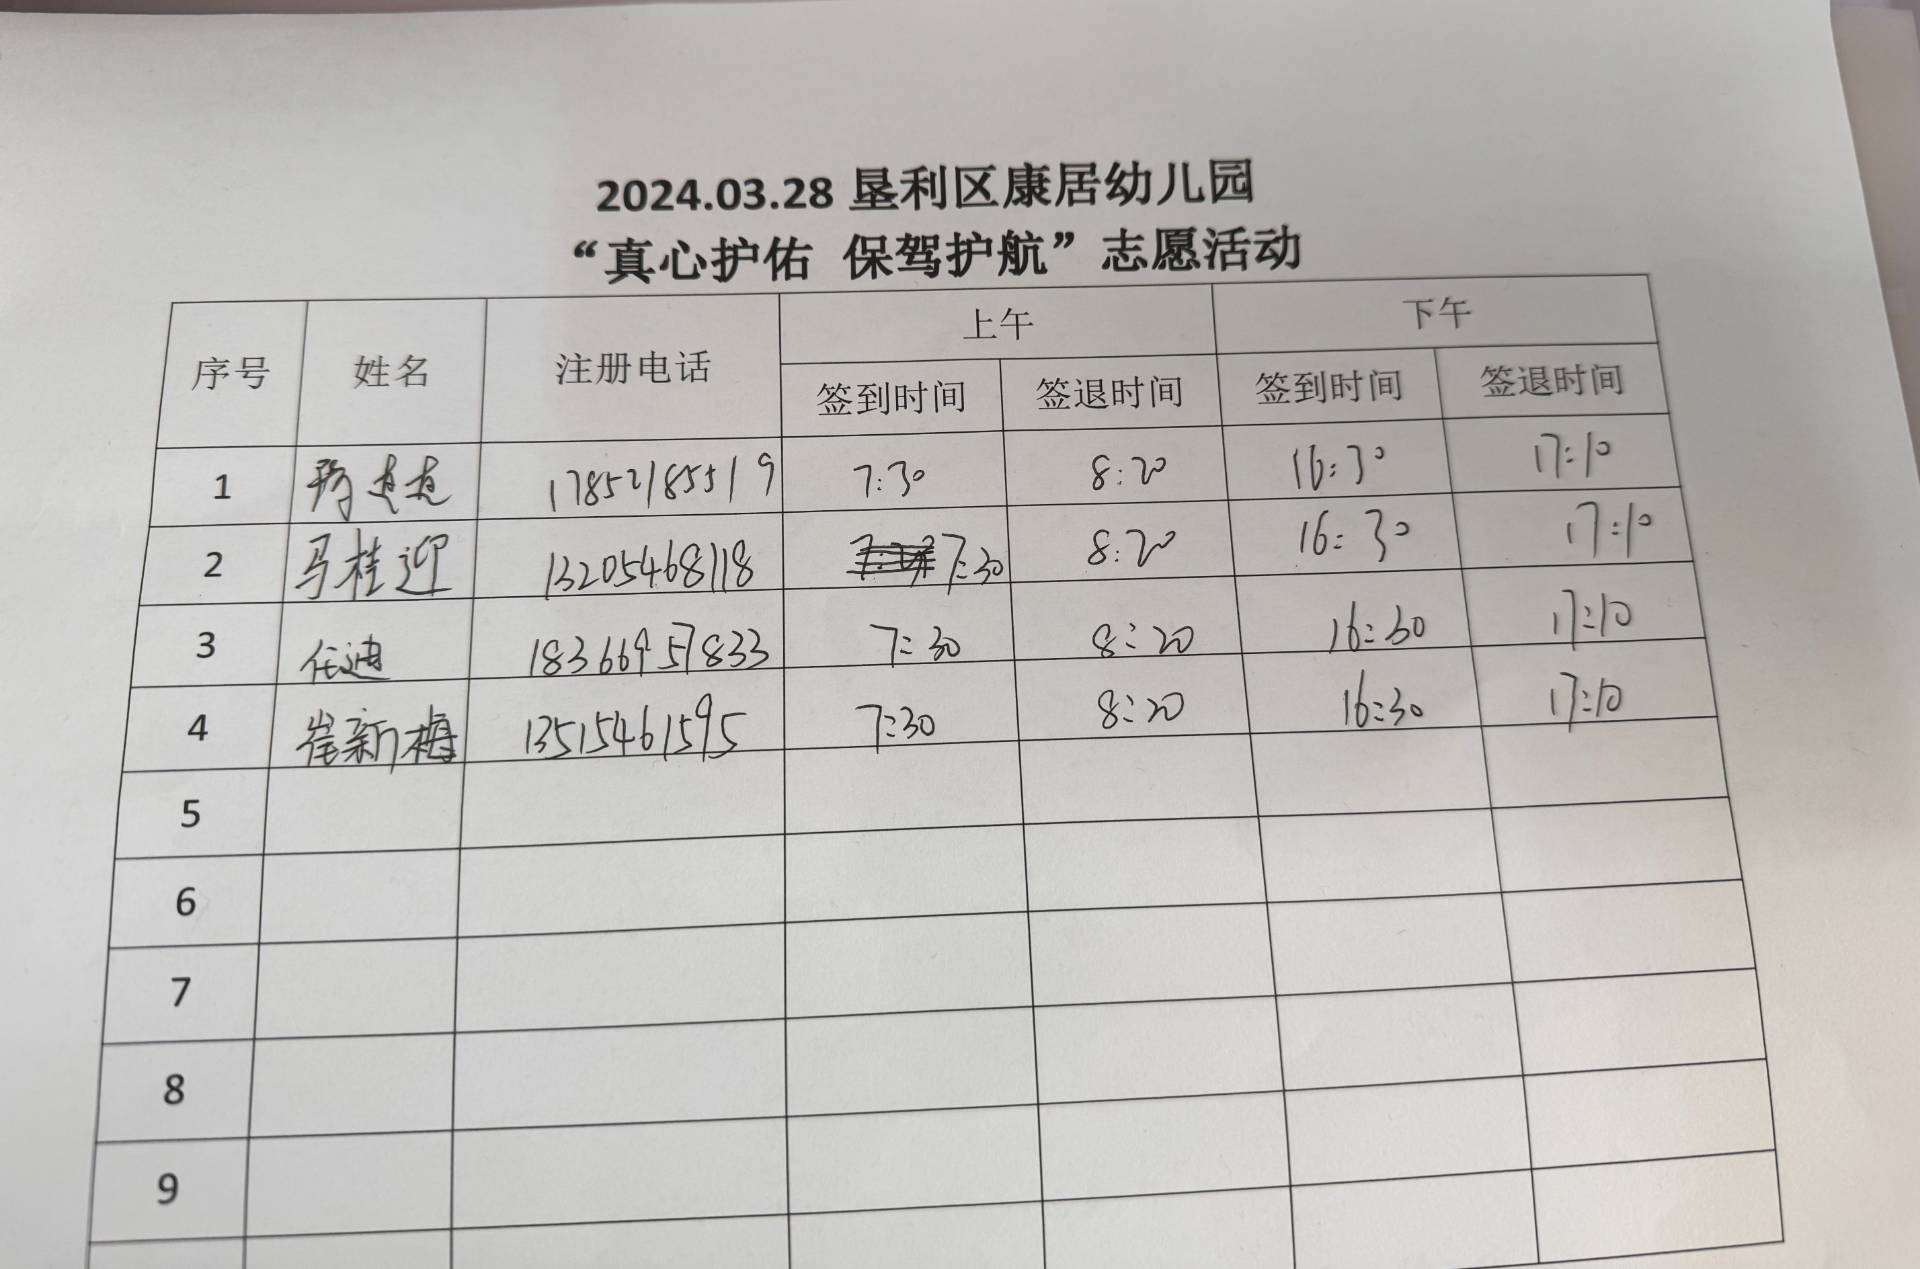 2024.03.28 垦利区康居幼儿园
“真心护佑 保驾护航”志愿活动
序号 姓名 注册电话 上午 下午
签到时间 签退时间 签到时间 签退时间
1 17852185519 7:30 8:20 16:30 17:10
2 马桂迎 13205468118 7:30 8:20 16:30 17:10
3 任迪 18366957833 7:30 8:20 16:30 17:10
4 崔新梅 13515461595 7:30 8:20 16:30 17:10
5
6
7
8
9